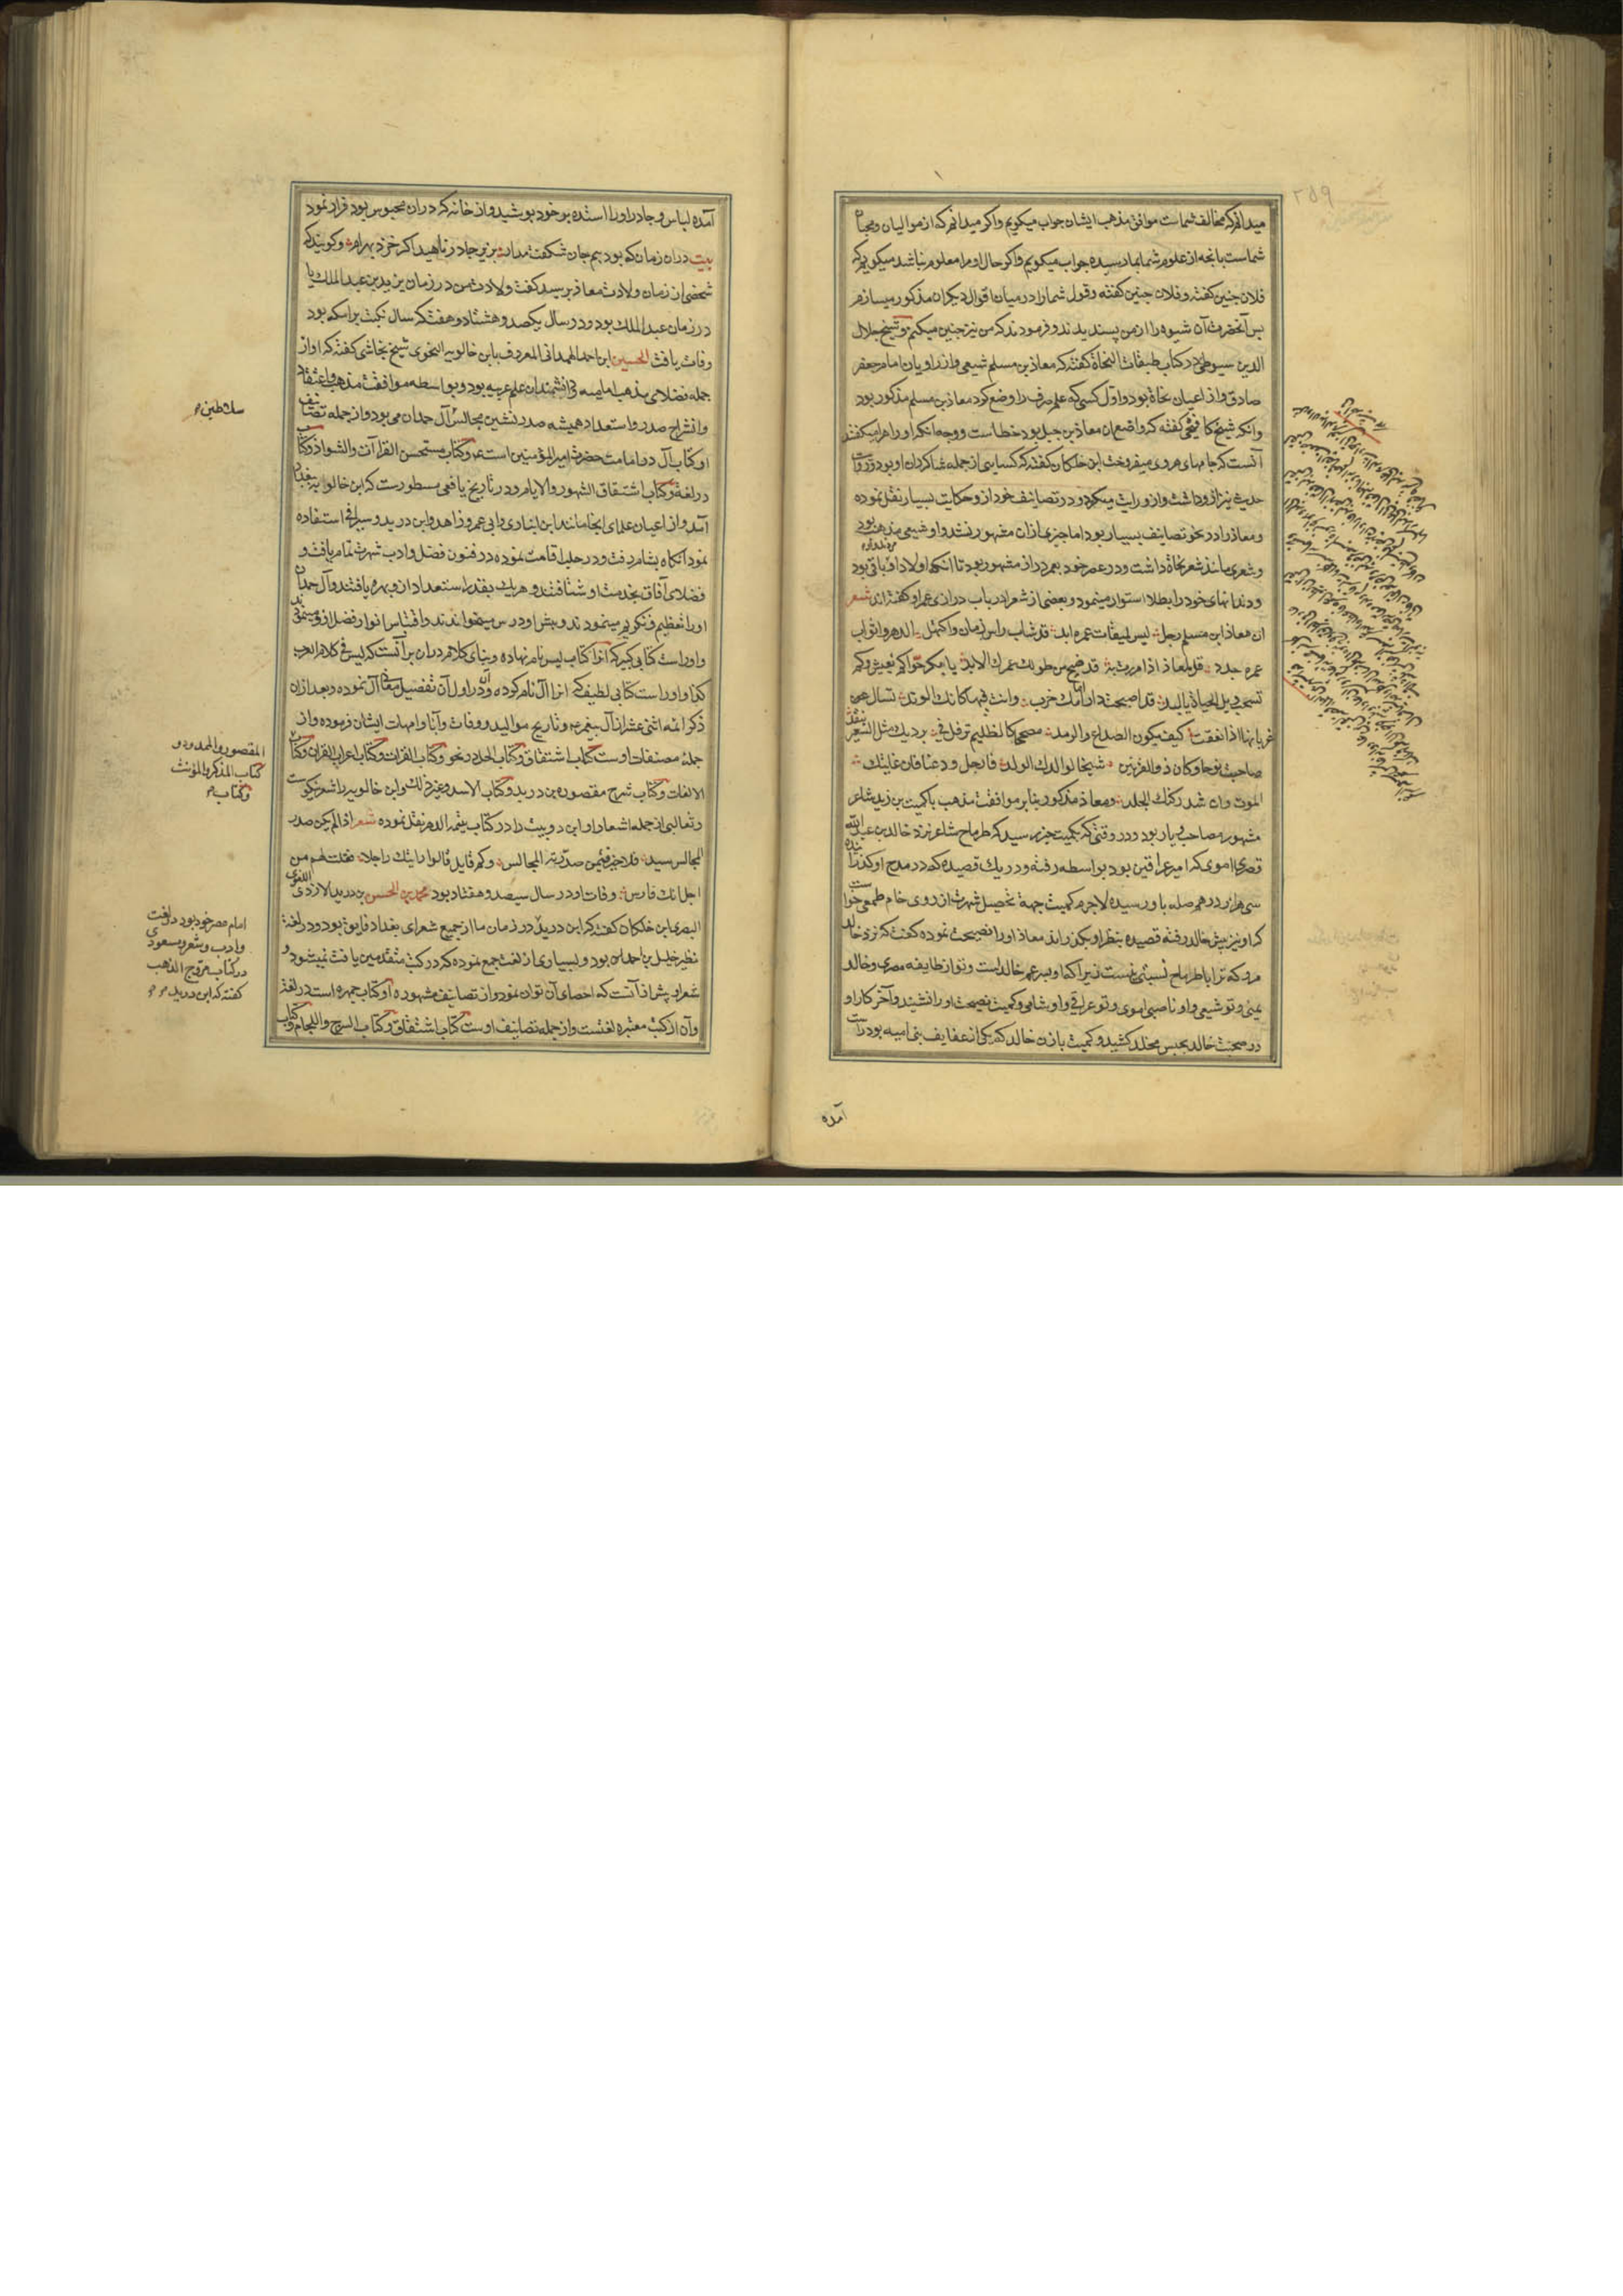 میدانم که مخالف شماست موافق مذهب ایشان جواب میکویم واکر میدانم که از موالیان ومحبان
شماست بانچه از علوم شما بما رسیده جواب میکویم واکر حال او مرا معلوم نباشد میکویم که
فلان چنین کفته وفلان چنین کفته وقول شما را در میان اقوال دیکران مذکور میسازم
پس آنحضرت آن شیوه را از من پسندیدند وفرمودند که من نیز چنین میکنم وشیخ جلال
الدین سیوطی در کتاب طبقات النحاة کفته که معاذ بن مسلم شیعی واز راویان امام جعفر
صادق واز اعیان نحاة بود واول کسی که علم صرف را وضع کرد معاذ بن مسلم مذکور بود
وانکه شیخ کافیجی کفته که واضع ان معاذ بن جبل بود خطاست ووجه انکه او را هرا میکفتند
آنست که جامهای هروی میفروخت ابن خلکان کفته که کسایی از جمله شاکردان او بود وروایت
حدیث نیز ازو داشت وازو روایت میکرد ودر تصانیف خود ازو حکایت بسیار نقل نموده
ومعاذ را در نحو تصانیف بسیار بود اما چیزی ازان مشهور نشد واو شیعی مذهب بود
وشعری مانند شعر نحاة داشت ودر عصر خود بعمر دراز مشهور بود تا انکه اولاد او باقی بود
ودندانهای خود را بطلا استوار مینمود وبعضی از شعرا در باب درازی عمر او کفته اند شعر
ان معاذ ابن مسلم رجل لیس لمیقات عمره ابد قد شاب راس الزمان واکتهل الدهر واثواب
عمره جدد قل لمعاذ اذا مررت به قد ضج من طول عمرک الابد یا بکر حوا کم تعیش وکم
تسحب ذیل الحیاة یا لبد قد اصبحت دار آدم خرب وانت فیها کانک الوتد تسال
غربانها اذا نعقت کیف یکون الصداع والرمد مصححا کالظلیم ترفل فی بردیک مثل السعیر تتقد
صاحبت نوحا وکان ذو القرنین شیخا لوالدک الولد فارحل ودعنا فان غایتک
الموت وان شد رکنک الجلد ومعاذ مذکور بنابر موافقت مذهب با کمیت بن زید شاعر
مشهور مصاحب ویار بود ودر وقتی که بکمیت خبر رسید که طرماح شاعر نزد خالد بن عبدالله
قصری اموی که امیر عراقین بود بواسطه رفته ودر یک قصیده که در مدح او کذرانده
سی هزار درهم صله باو رسیده لاجرم کمیت جهة تحصیل شهرت از روی خام طمعی خواست
که او نیز پیش خالد رفته قصیده بنظر او بکذراند معاذ او را نصیحت نموده کفت که نزد خالد
مرو که ترا با طرماح نسبتی نیست زیرا که او پسر عم خالد است وتو از طایفه مضری وخالد
یمنی وتو شیعی واو ناصبی اموی وتو عراقی واو شامی وکمیت نصیحت او را نشنید وآخر کار او
در صحبت خالد بحبس مخلد کشید وکمیت با زن خالد که یکی از عفایف بنی امیه بود راست
آمده
آمده لباس وچادر او را استده بر خود پوشید واز خانه که دران محبوس بود فرار نمود
بیت دران زمان که بود بیم جان شکفت مدار بزیر چادر ناهید اکر خزد بهرام وکویند که
شخصی از زمان ولادت معاذ پرسید کفت ولادت من در زمان یزید بن عبد الملک یا
در زمان عبد الملک بود ودر سال یکصد وهشتاد وهفت که سال نکبت برامکه بود
وفات یافت الحسین ابن احمد الهمدانی المعروف بابن خالویه النحوی شیخ نجاشی کفته که او از
جمله فضلای مذهب امامیه ودانشمندان علم عربیه بود وبواسطه موافقت مذهب واعتقاد
وانشراح صدر واستعداد همیشه صدر نشین مجالس آل حمدان می بود واز جمله تصانیف
او کتاب آل در امامت حضرت امیر المؤمنین است عم وکتاب مستحسن القراآت والشواذ وکتاب
در لغة وکتاب اشتقاق الشهور والایام ودر تاریخ یافعی مسطورست که ابن خالویه ببغداد
آمد واز اعیان علمای انجا مانند ابن انباری وابی عمرو زاهد وابن درید وسیرافی استفاده
نمود آنکاه بشام رفت ودر حلب اقامت نموده در فنون فضل وادب شهرت تمام یافت و
فضلای آفاق بخدمت او شتافتند وهر یک بقدر استعداد ازو بهره یافتند وآل حمدان
او را تعظیم وتکریم مینمودند وپیش او درس میخواندند واقتباس انوار فضل ازو مینمودند
واو راست کتابی کبیر که انرا کتاب لیس نام نهاده وبنای کلام دران برآنست که لیس فی کلام العرب
کذا واو راست کتابی لطیف که انرا آل نام کرده ودر اول آن تفصیل معانی آل نموده وبعد ازان
ذکر ائمه اثنی عشر از آل پیغمبر وتاریخ موالید ووفات وآبا وامهات ایشان فرموده واز
جمله مصنفات اوست کتاب اشتقاق وکتاب الجمل در نحو وکتاب القراات وکتاب اعراب القران وکتاب
الالفات وکتاب شرح مقصوره بن درید وکتاب الاسد وغیر ذلک وابن خالویه را شعر نیکوست
وثعالبی از جمله اشعار او این دو بیت را در کتاب یتیمة الدهر نقل نموده شعر اذا لم یکن صدر
المجالس سید فلا خیر فیمن صدرته المجالس وکم قایل قالوا رایتک راجلا فقلت لهم من
اجل انک فارس وفات او در سال سیصد وهفتاد بود محمد بن الحسن بن درید الازدی اللغوی
البصری ابن خلکان کفته که ابن درید در زمان ما از جمیع شعرای بغداد فایق بود ودر لغة
نظیر خلیل بن احمد بود وبسیاری از لغت جمع نموده که در کتب متقدمین یافت نمیشود و
شعر او بیش از آنست که احصای آن توان نمود واز تصانیف مشهوره او کتاب جمهره است در لغة
وآن از کتب معتبره لغتست واز جمله تصانیف اوست کتاب اشتقاق وکتاب السرج واللجام وکتاب
سلاطین
المقصور والممدود و
کتاب المذکر والمؤنث
وکتاب
امام عصر خود بود در لغت
وادب وشعر ومسعودی
در کتاب مروج الذهب
کفته که ابن درید